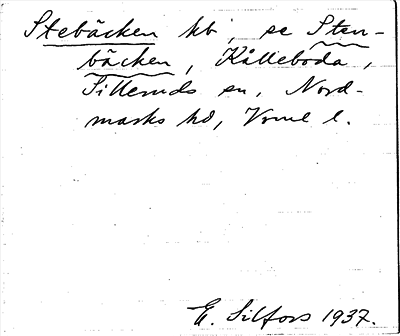 Stebäcken hb, se Sten-
bäcken, Kålleboda,
Silleruds sn, Nord-
marks hd, Vrml l.
E. Silfors 1937.